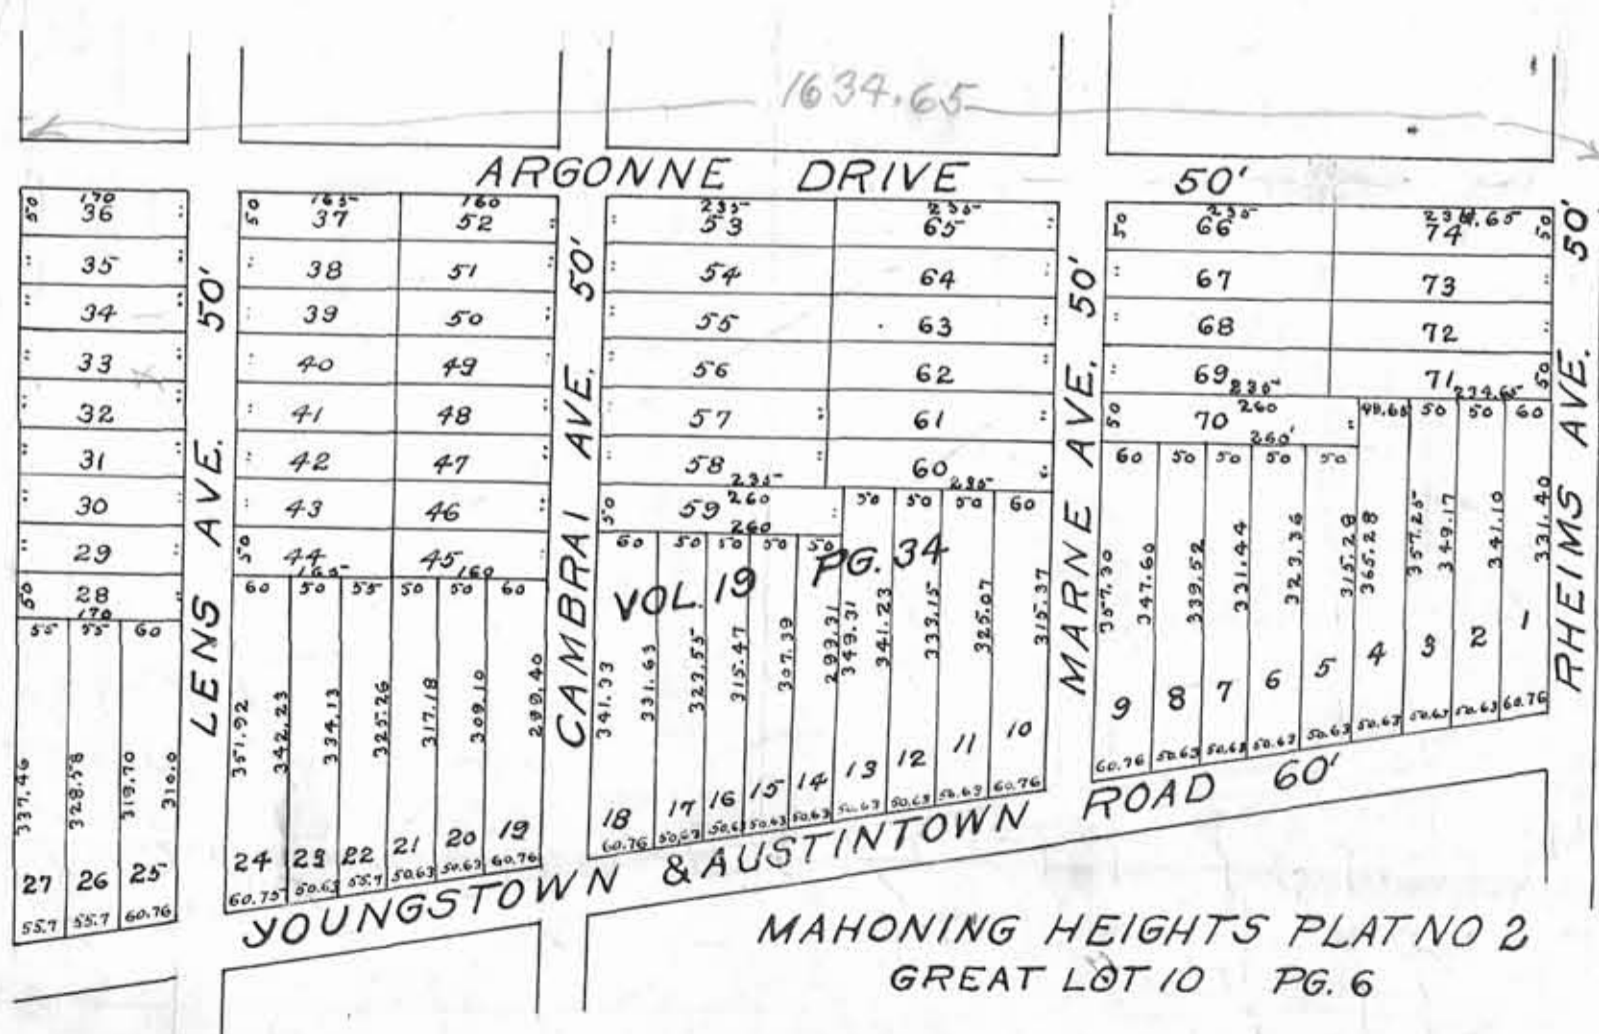 1634.65
ARGONNE DRIVE 50'
50 170 36
35
34
33
32
31
30
29
50 28 170
55 55 60
337.46 328.58 319.70 310.0
27 26 25
55.7 55.7 60.76
LENS AVE. 50'
50 165 37 160 52
38 51
39 50
40 49
41 48
42 47
43 46
50 44 165 45 160
60 50 55 50 50 60
351.92 342.23 334.13 325.26 317.18 309.10 299.40
24 23 22 21 20 19
60.75 50.63 55.7 50.63 50.63 60.76
CAMBRAI AVE. 50'
235 53 235 65
54 64
55 63
56 62
57 61
58 235 60 235
50 59 260
260
50 50 50 60
60 50 50 50 50
VOL. 19 PG. 34
341.33 331.63 323.55 315.47 307.39 299.31 349.31 341.23 333.15 325.07 315.37
18 17 16 15 14 13 12 11 10
60.76 50.63 50.63 50.63 50.63 50.63 50.63 50.63 60.76
MARNE AVE. 50'
50 235 66 234.65 74 50
67 73
68 72
69 235 71 234.65 50
50 70 260
260'
49.65 50 50 60
60 50 50 50 50
357.30 347.60 339.52 331.44 323.36 315.28 365.28 357.25 349.17 341.10 331.40
9 8 7 6 5 4 3 2 1
60.76 50.63 50.63 50.63 50.63 50.63 50.63 50.63 60.76
RHEIMS AVE. 50'
YOUNGSTOWN & AUSTINTOWN ROAD 60'
MAHONING HEIGHTS PLAT NO 2
GREAT LOT 10 PG. 6